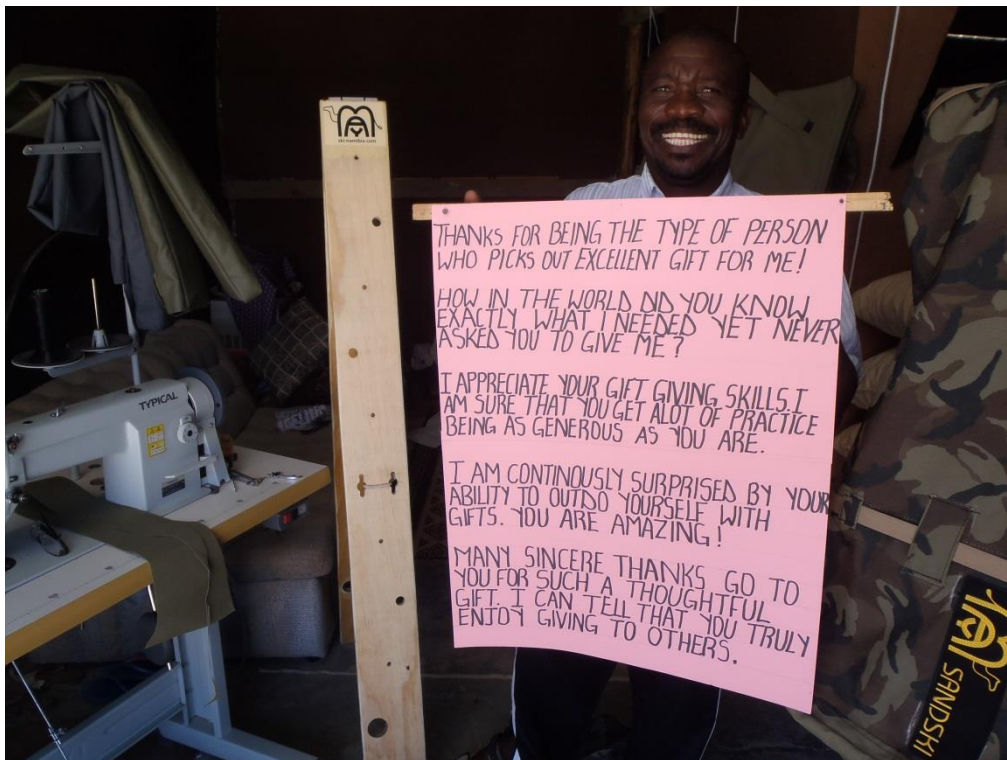 ski-namibia.com
TYPICAL
THANKS FOR BEING THE TYPE OF PERSON
WHO PICKS OUT EXCELLENT GIFT FOR ME!
HOW IN THE WORLD DID YOU KNOW
EXACTLY WHAT I NEEDED YET NEVER
ASKED YOU TO GIVE ME?
I APPRECIATE YOUR GIFT GIVING SKILLS. I
AM SURE THAT YOU GET ALOT OF PRACTICE
BEING AS GENEROUS AS YOU ARE.
I AM CONTINOUSLY SURPRISED BY YOUR
ABILITY TO OUTDO YOURSELF WITH
GIFTS. YOU ARE AMAZING!
MANY SINCERE THANKS GO TO
YOU FOR SUCH A THOUGHTFUL
GIFT. I CAN TELL THAT YOU TRULY
ENJOY GIVING TO OTHERS.
SANDSKI